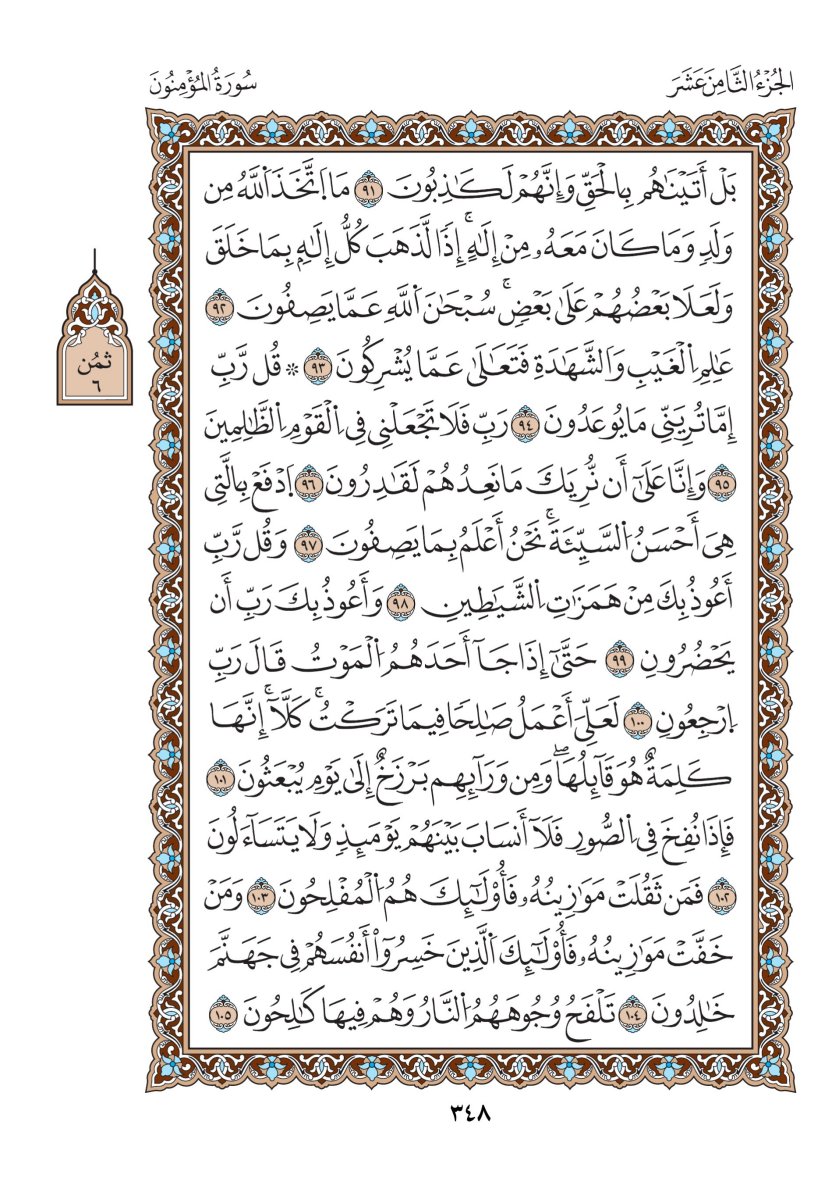 الجُزْءُ الثَّامِنَ عَشَرَ
سُورَةُ المُؤْمِنُونَ
بَلْ أَتَيْنَٰهُم بِالْحَقِّ وَإِنَّهُمْ لَكَٰذِبُونَ ٩١ مَا اَتَّخَذَ اَللَّهُ مِن
وَلَدٍ وَمَا كَانَ مَعَهُۥ مِنْ إِلَٰهٍۚ إِذاٗ لَّذَهَبَ كُلُّ إِلَٰهِۢ بِمَا خَلَقَ
وَلَعَلَا بَعْضُهُمْ عَلَىٰ بَعْضٖۚ سُبْحَٰنَ اَللَّهِ عَمَّا يَصِفُونَ ٩٢
عَٰلِمِ اِلْغَيْبِ وَالشَّهَٰدَةِ فَتَعَٰلَىٰ عَمَّا يُشْرِكُونَ ٩٣ ۞ قُل رَّبِّ
إِمَّا تُرِيَنِّي مَا يُوعَدُونَ ٩٤ رَبِّ فَلَا تَجْعَلْنِي فِي اِلْقَوْمِ اِلظَّٰلِمِينَ
٩٥ وَإِنَّا عَلَىٰٓ أَن نُّرِيَكَ مَا نَعِدُهُمْ لَقَٰدِرُونَ ٩٦ اَدْفَعْ بِالَّتِي
هِيَ أَحْسَنُ اُلسَّيِّئَةَۚ نَحْنُ أَعْلَمُ بِمَا يَصِفُونَ ٩٧ وَقُل رَّبِّ
أَعُوذُ بِكَ مِنْ هَمَزَٰتِ اِلشَّيَٰطِينِ ٩٨ وَأَعُوذُ بِكَ رَبِّ أَن
يَحْضُرُونِ ٩٩ حَتَّىٰٓ إِذَا جَآ أَحَدَهُمُ اُلْمَوْتُ قَالَ رَبِّ
اِرْجِعُونِ ١٠٠ لَعَلِّيَ أَعْمَلُ صَٰلِحاٗ فِيمَا تَرَكْتُۚ كَلَّآۚ إِنَّهَا
كَلِمَةٌ هُوَ قَآئِلُهَاۖ وَمِن وَرَآئِهِم بَرْزَخٌ إِلَىٰ يَوْمِ يُبْعَثُونَ ١٠١
فَإِذَا نُفِخَ فِي اِلصُّورِ فَلَآ أَنسَابَ بَيْنَهُمْ يَوْمَئِذٖ وَلَا يَتَسَآءَلُونَ
١٠٢ فَمَن ثَقُلَتْ مَوَٰزِينُهُۥ فَأُوْلَٰٓئِكَ هُمُ اُلْمُفْلِحُونَ ١٠٣ وَمَنْ
خَفَّتْ مَوَٰزِينُهُۥ فَأُوْلَٰٓئِكَ اَلَّذِينَ خَسِرُوٓاْ أَنفُسَهُمْ فِي جَهَنَّمَ
خَٰلِدُونَ ١٠٤ تَلْفَحُ وُجُوهَهُمُ اُلنَّارُ وَهُمْ فِيهَا كَٰلِحُونَ ١٠٥
ثمُن
٦
٣٤٨